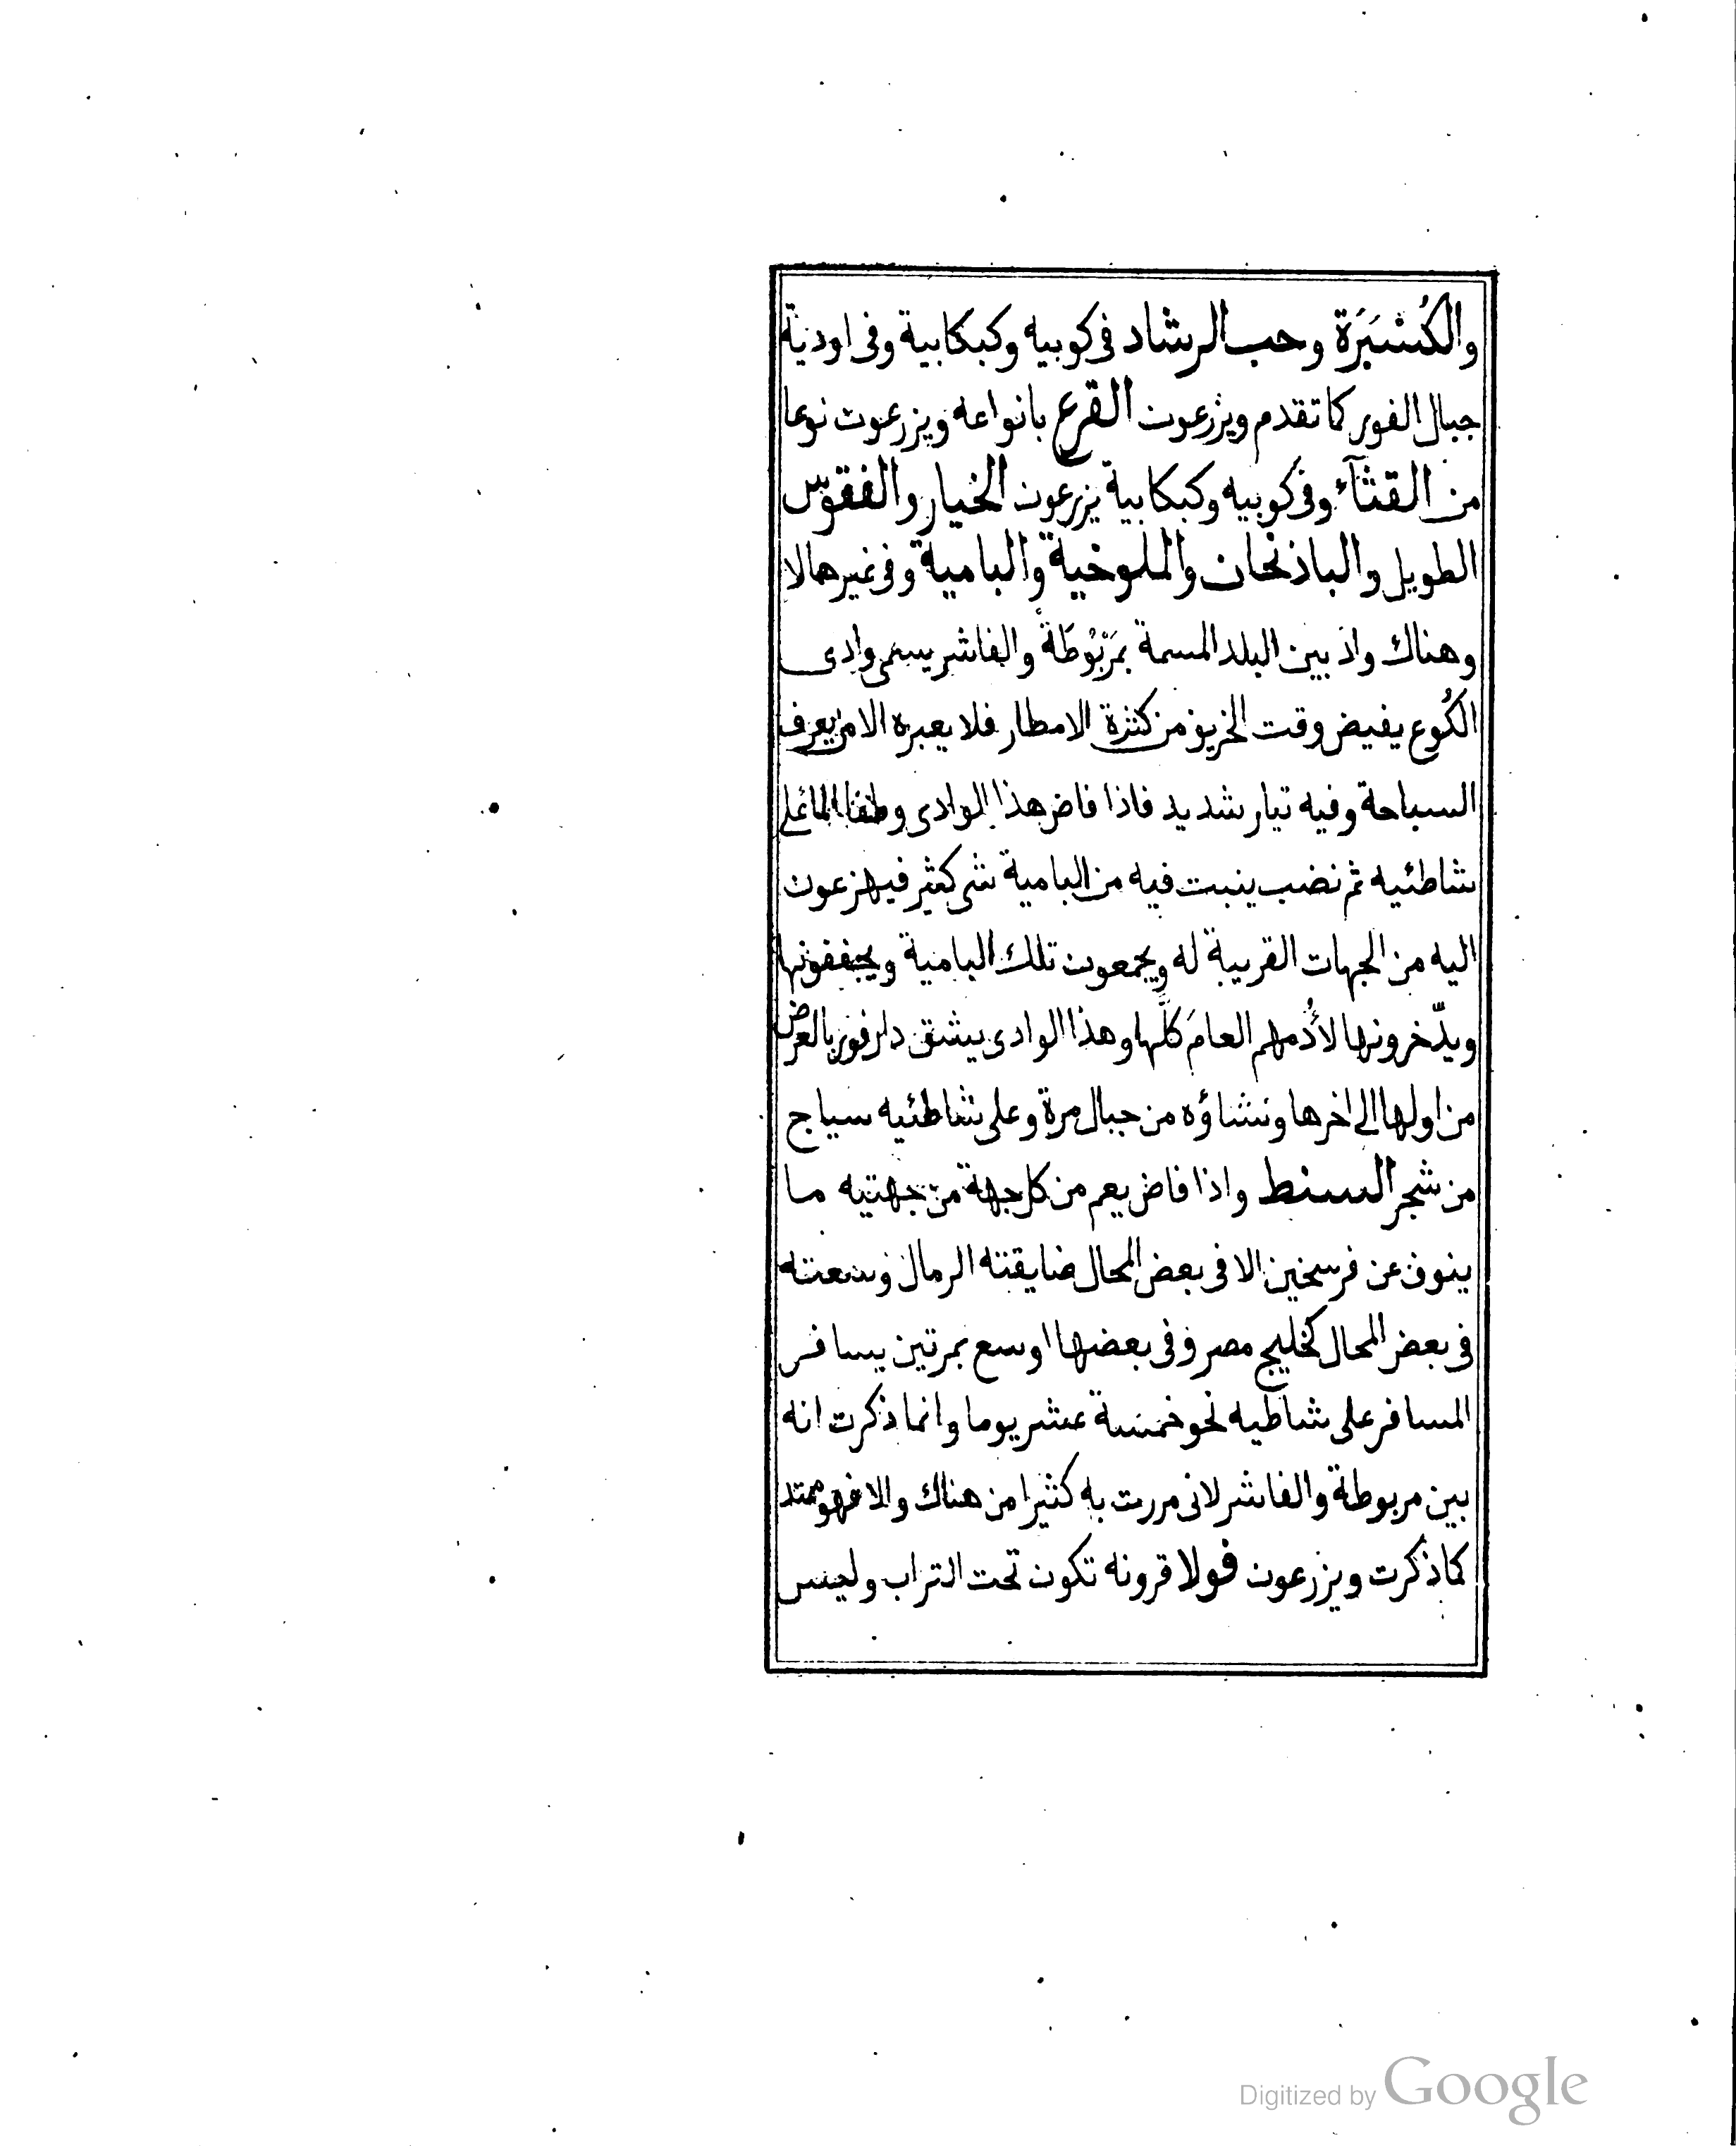 والكُسْبَرَة وحب الرشاد فى كوبيه وكبكابية وفى اودية
جبال الفور كما تقدم ويزرعون القرع بانواعه ويزرعون نوعا
من القثآء وفى كوبيه وكبكابية يزرعون الخيار والفقوس
الطويل والباذنجان والملوخية والبامية وفى غيرهما لا
وهناك واد بين البلد المسمة بمَرْبُوطَة والفاشر يسمى وادى
الكُوع يفيض وقت الخريف من كثرة الامطار فلا يعبره الا من يعرف
السباحة وفيه تيار شديد فاذا فاض هذا الوادى وطفا الماء على
شاطئيه ثم نضب ينبت فيه من البامية شى كثير فيهزعون
اليه من الجهات القريبة له ويجمعون تلك البامية ويجففونها
ويدّخرونها لأُدمهم العامَ كلَّها وهذا الوادى يشق دار فور بالعرض
من اولها الى اخرها ونشاؤه من جبال مرة وعلى شاطئيه سياج
من شجر السنط واذا فاض يعم من كل جهة من جهتيه ما
ينوف عن فرسخين الا فى بعض المحال ضايقته الرمال وسعته
فى بعض المحال كخليج مصر وفى بعضها اوسع بمرتين يسافر
المسافر على شاطيه نحو خمسة عشر يوما وانما ذكرت انه
بين مربوطة والفاشر لانى مررت به كثيرا من هناك والا فهو ممتد
كما ذكرت ويزرعون فولا قرونه تكون تحت التراب وليس
Digitized by Google